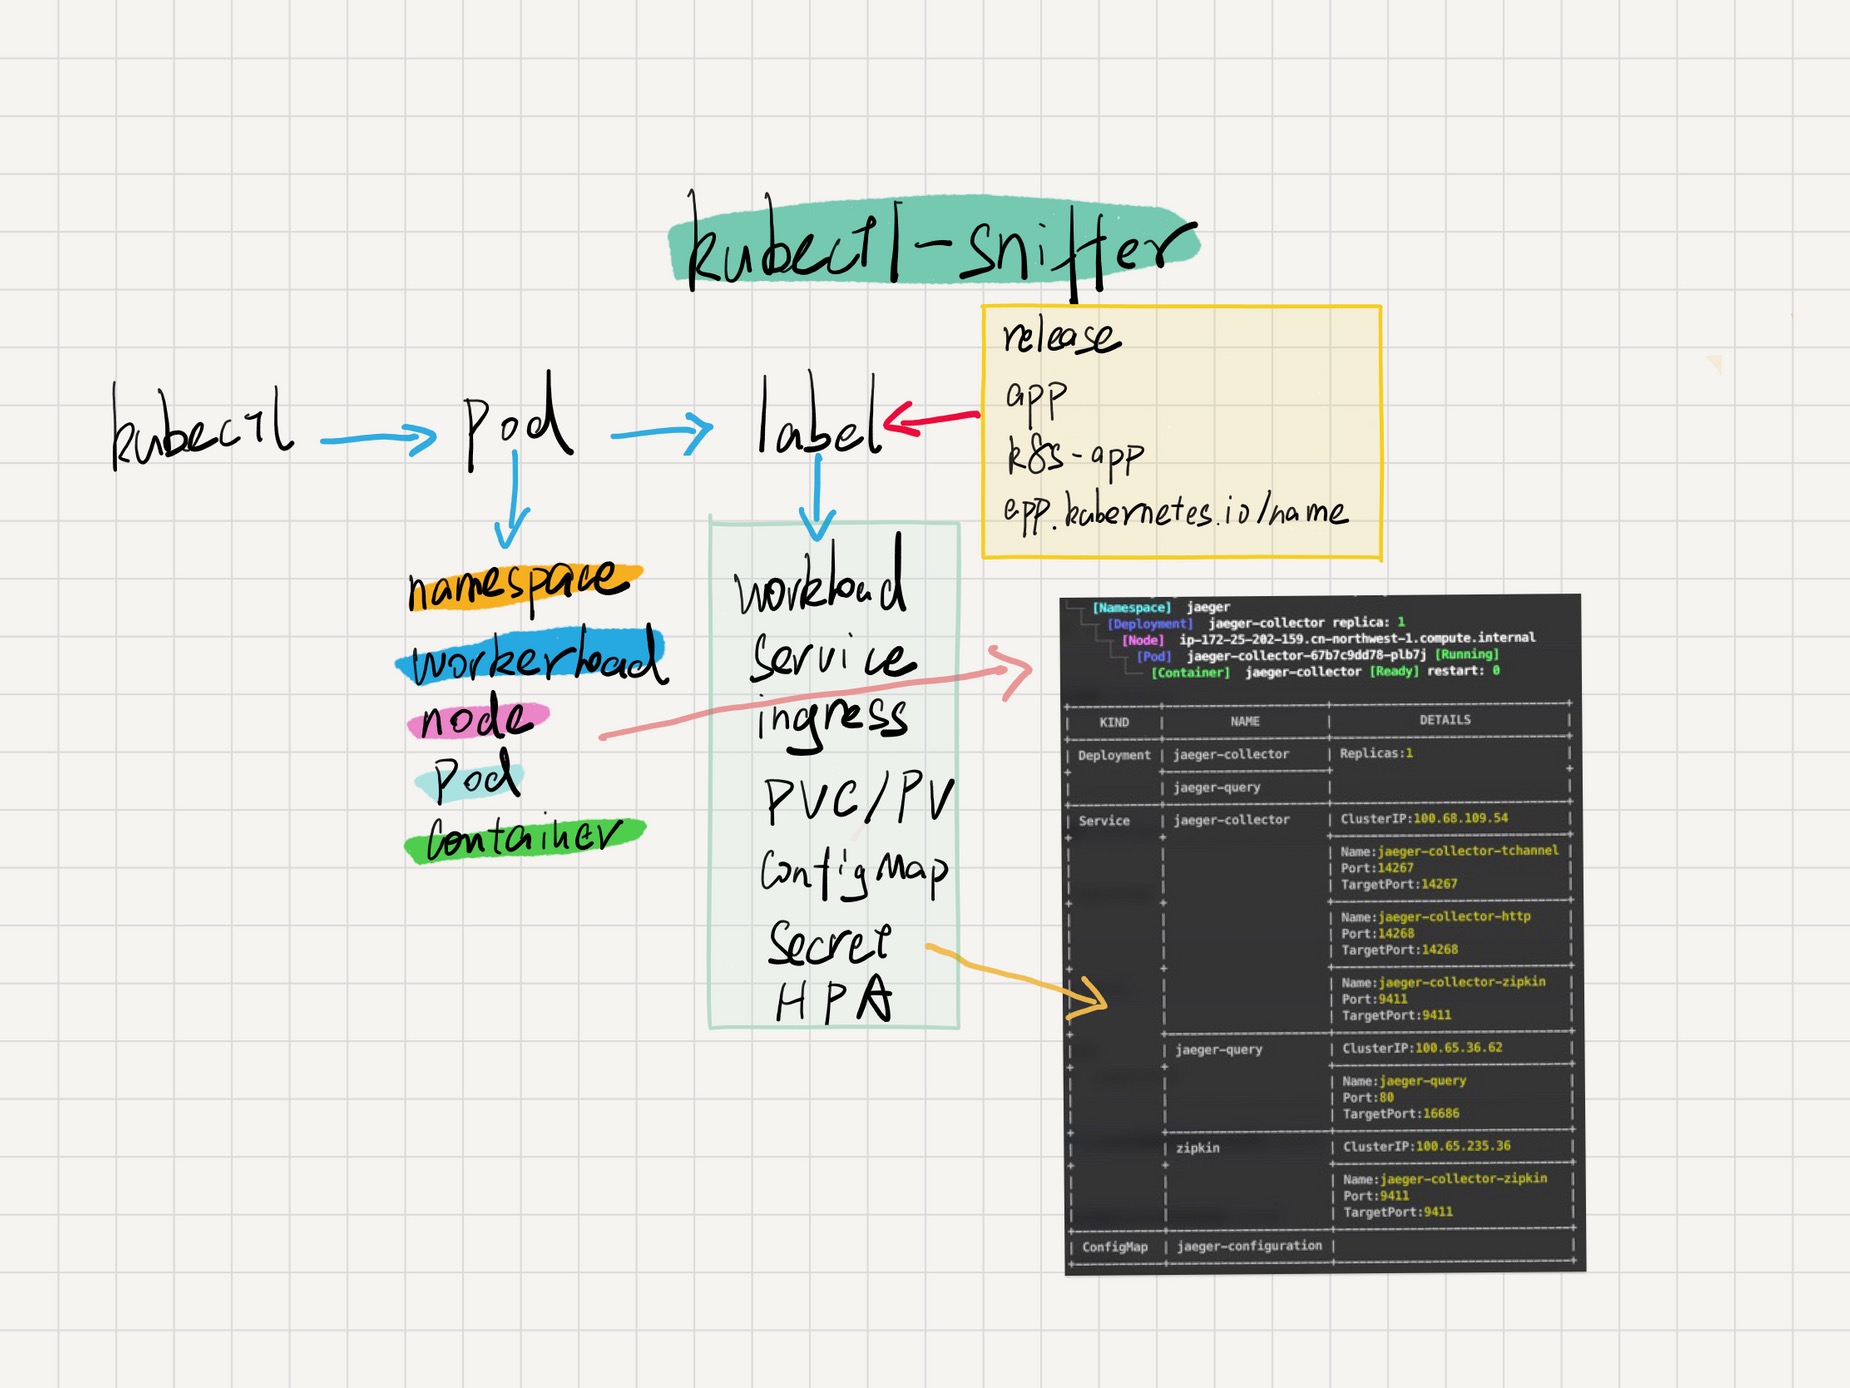 kubectl-sniffer
kubectl
Pod
label
release
app
k8s-app
app.kubernetes.io/name
namespace
workerload
node
Pod
container
workload
Service
ingress
PVC/PV
ConfigMap
Secret
HPA
[Namespace] jaeger
[Deployment] jaeger-collector replica: 1
[Node] ip-172-25-202-159.cn-northwest-1.compute.internal
[Pod] jaeger-collector-67b7c9dd78-plb7j [Running]
[Container] jaeger-collector [Ready] restart: 0
KIND NAME DETAILS
Deployment jaeger-collector Replicas:1
jaeger-query
Service jaeger-collector ClusterIP:100.68.109.54
Name:jaeger-collector-tchannel
Port:14267
TargetPort:14267
Name:jaeger-collector-http
Port:14268
TargetPort:14268
Name:jaeger-collector-zipkin
Port:9411
TargetPort:9411
jaeger-query ClusterIP:100.65.36.62
Name:jaeger-query
Port:80
TargetPort:16686
zipkin ClusterIP:100.65.235.36
Name:jaeger-collector-zipkin
Port:9411
TargetPort:9411
ConfigMap jaeger-configuration